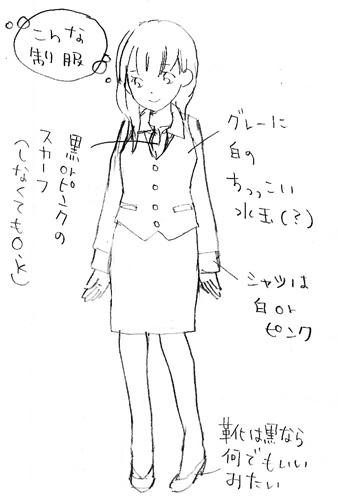 こんな
制服
グレーに
白の
ちっこい
水玉(?)
黒orピンクの
スカーフ
(しなくてもO.K)
シャツは
白or
ピンク
靴は黒なら
何でもいい
みたい